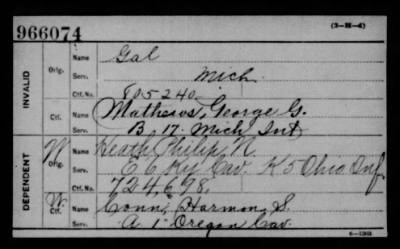 966074
(3-H-4)
INVALID
Orig.
Name Gal
Serv. Mich
Ctf. No. 805240
Ctf.
Name Mathews, George G.
Serv. B, 17. Mich Inf
DEPENDENT
W
Orig.
Name Heath Philip N.
Serv. E 6 Ky Cav. K 5 Ohio Inf
Ctf. No. 724,698.
W.
Ctf.
Name Conn, Harmon S.
Serv. A 1 Oregon Cav